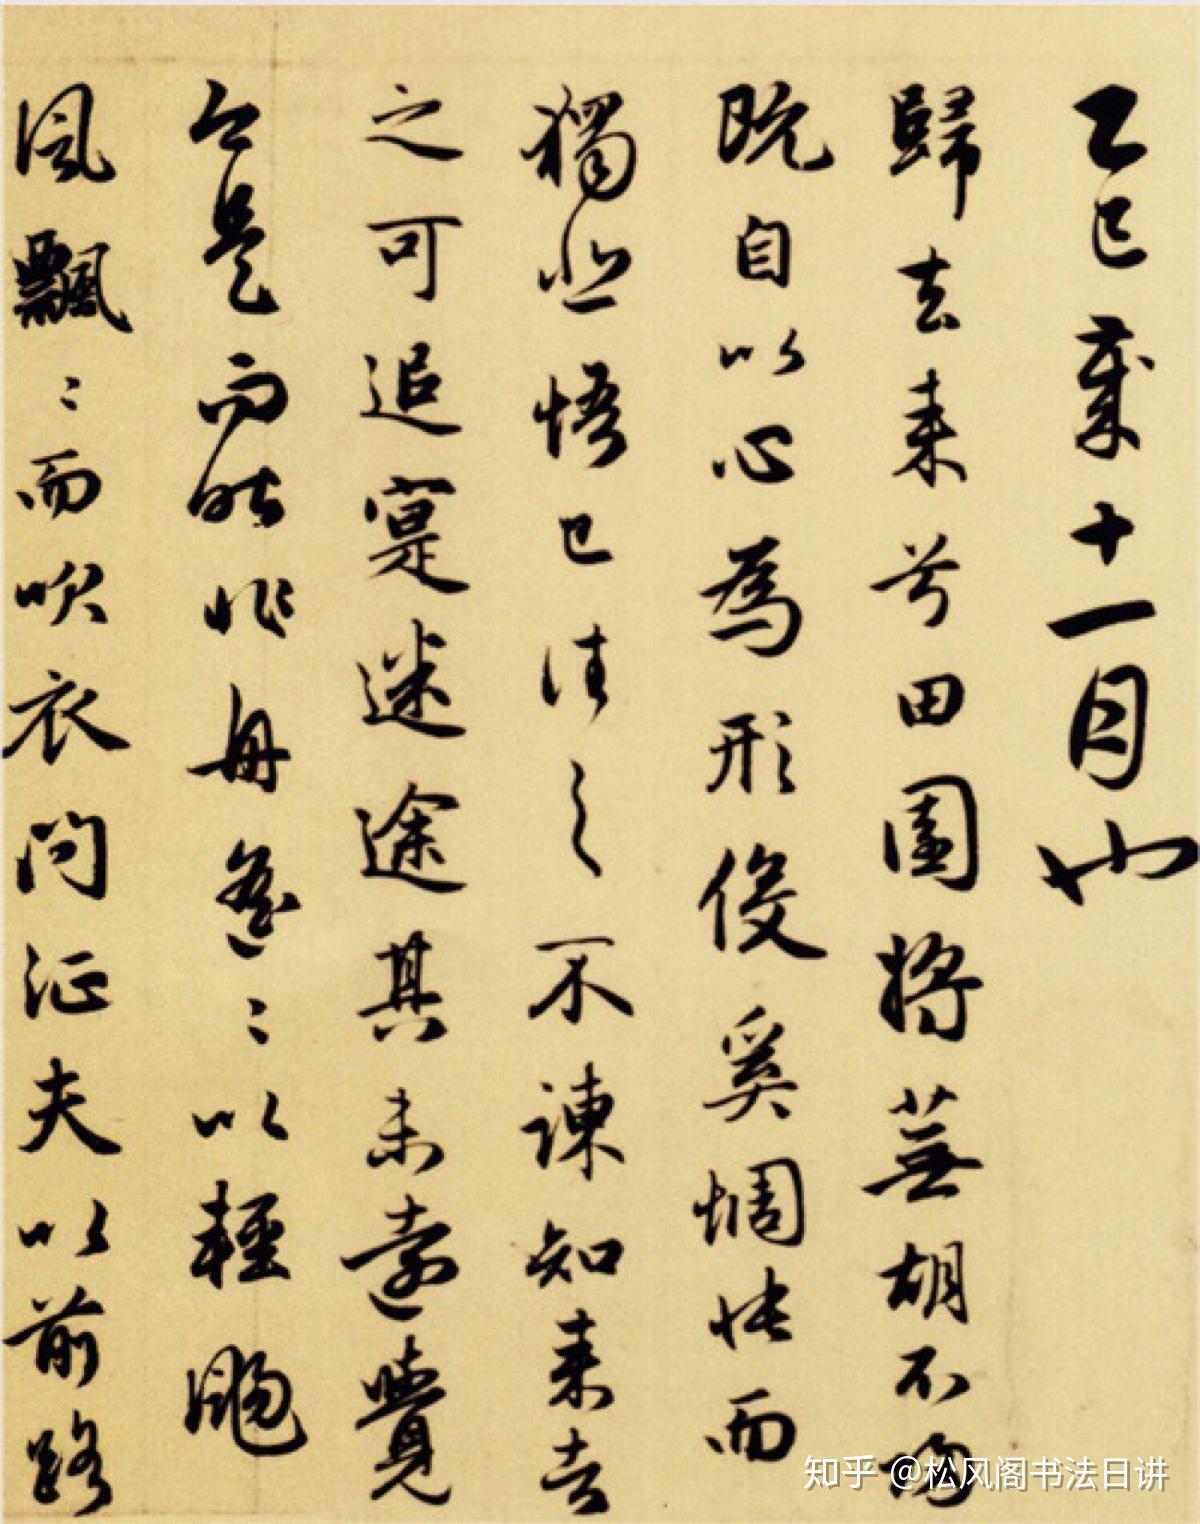 乙巳歲十一月也
歸去来兮田園將蕪胡不歸
既自以心為形役奚惆悵而
獨悲悟已往之不諫知来者
之可追寔迷途其未遠覺
今是而昨非舟遙〻以輕颺
風飄〻而吹衣問征夫以前路
知乎 @松风阁书法日讲